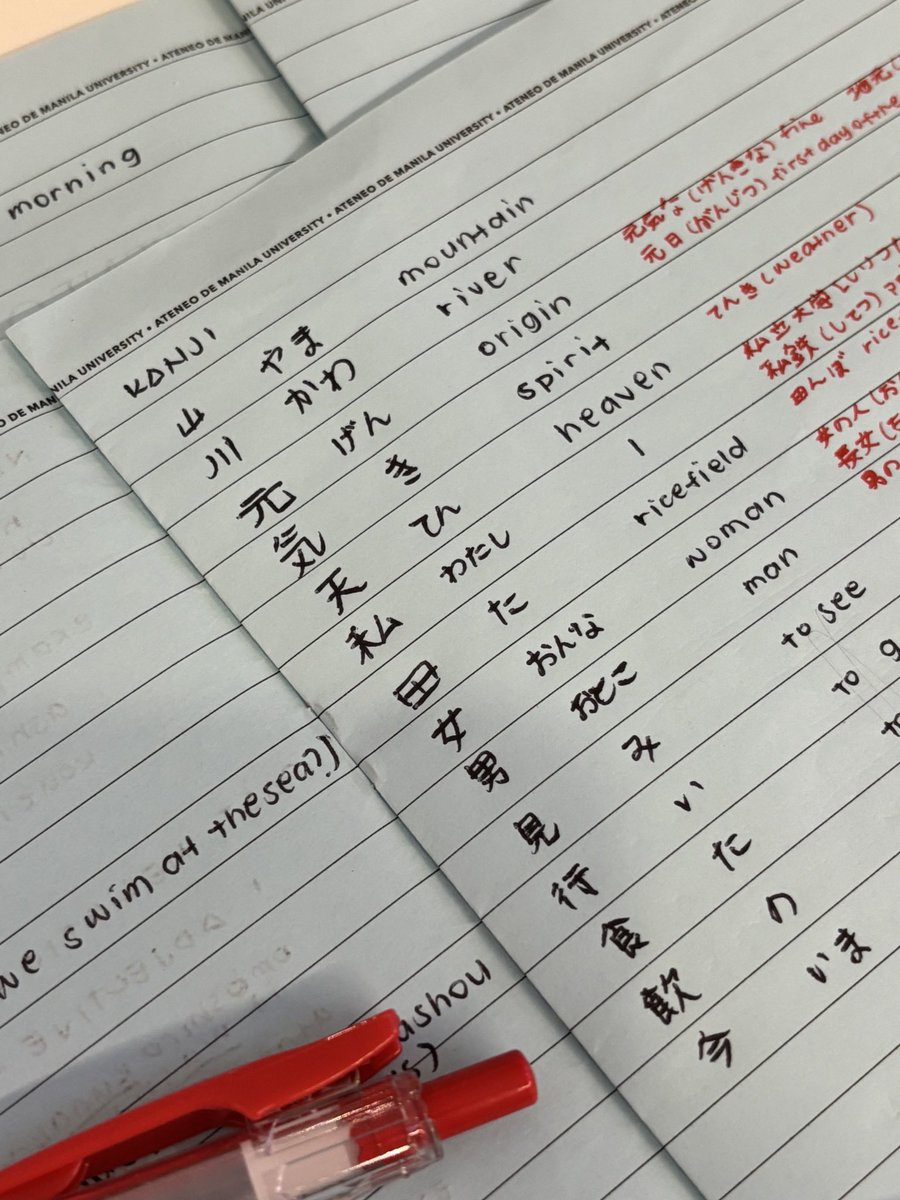 ATENEO DE MANILA UNIVERSITY • ATENEO DE MANILA UNIVERSITY • ATENEO DE MANILA UNIVERSITY
morning
KANJI
山 やま mountain
川 かわ river
元 げん origin 元気な (げんきな) fine
元日 (がんじつ) first day of the
気 き spirit
天 てん heaven てんき (weather)
私 わたし I 私立大学
私鉄 (してつ)
田 た ricefield 田んぼ rice
女 おんな woman 女の人 (お
長女
男 おとこ man 男の
見 み to see
行 い to g
食 た
飲 の
今 いま
we swim at the sea?)
ashou